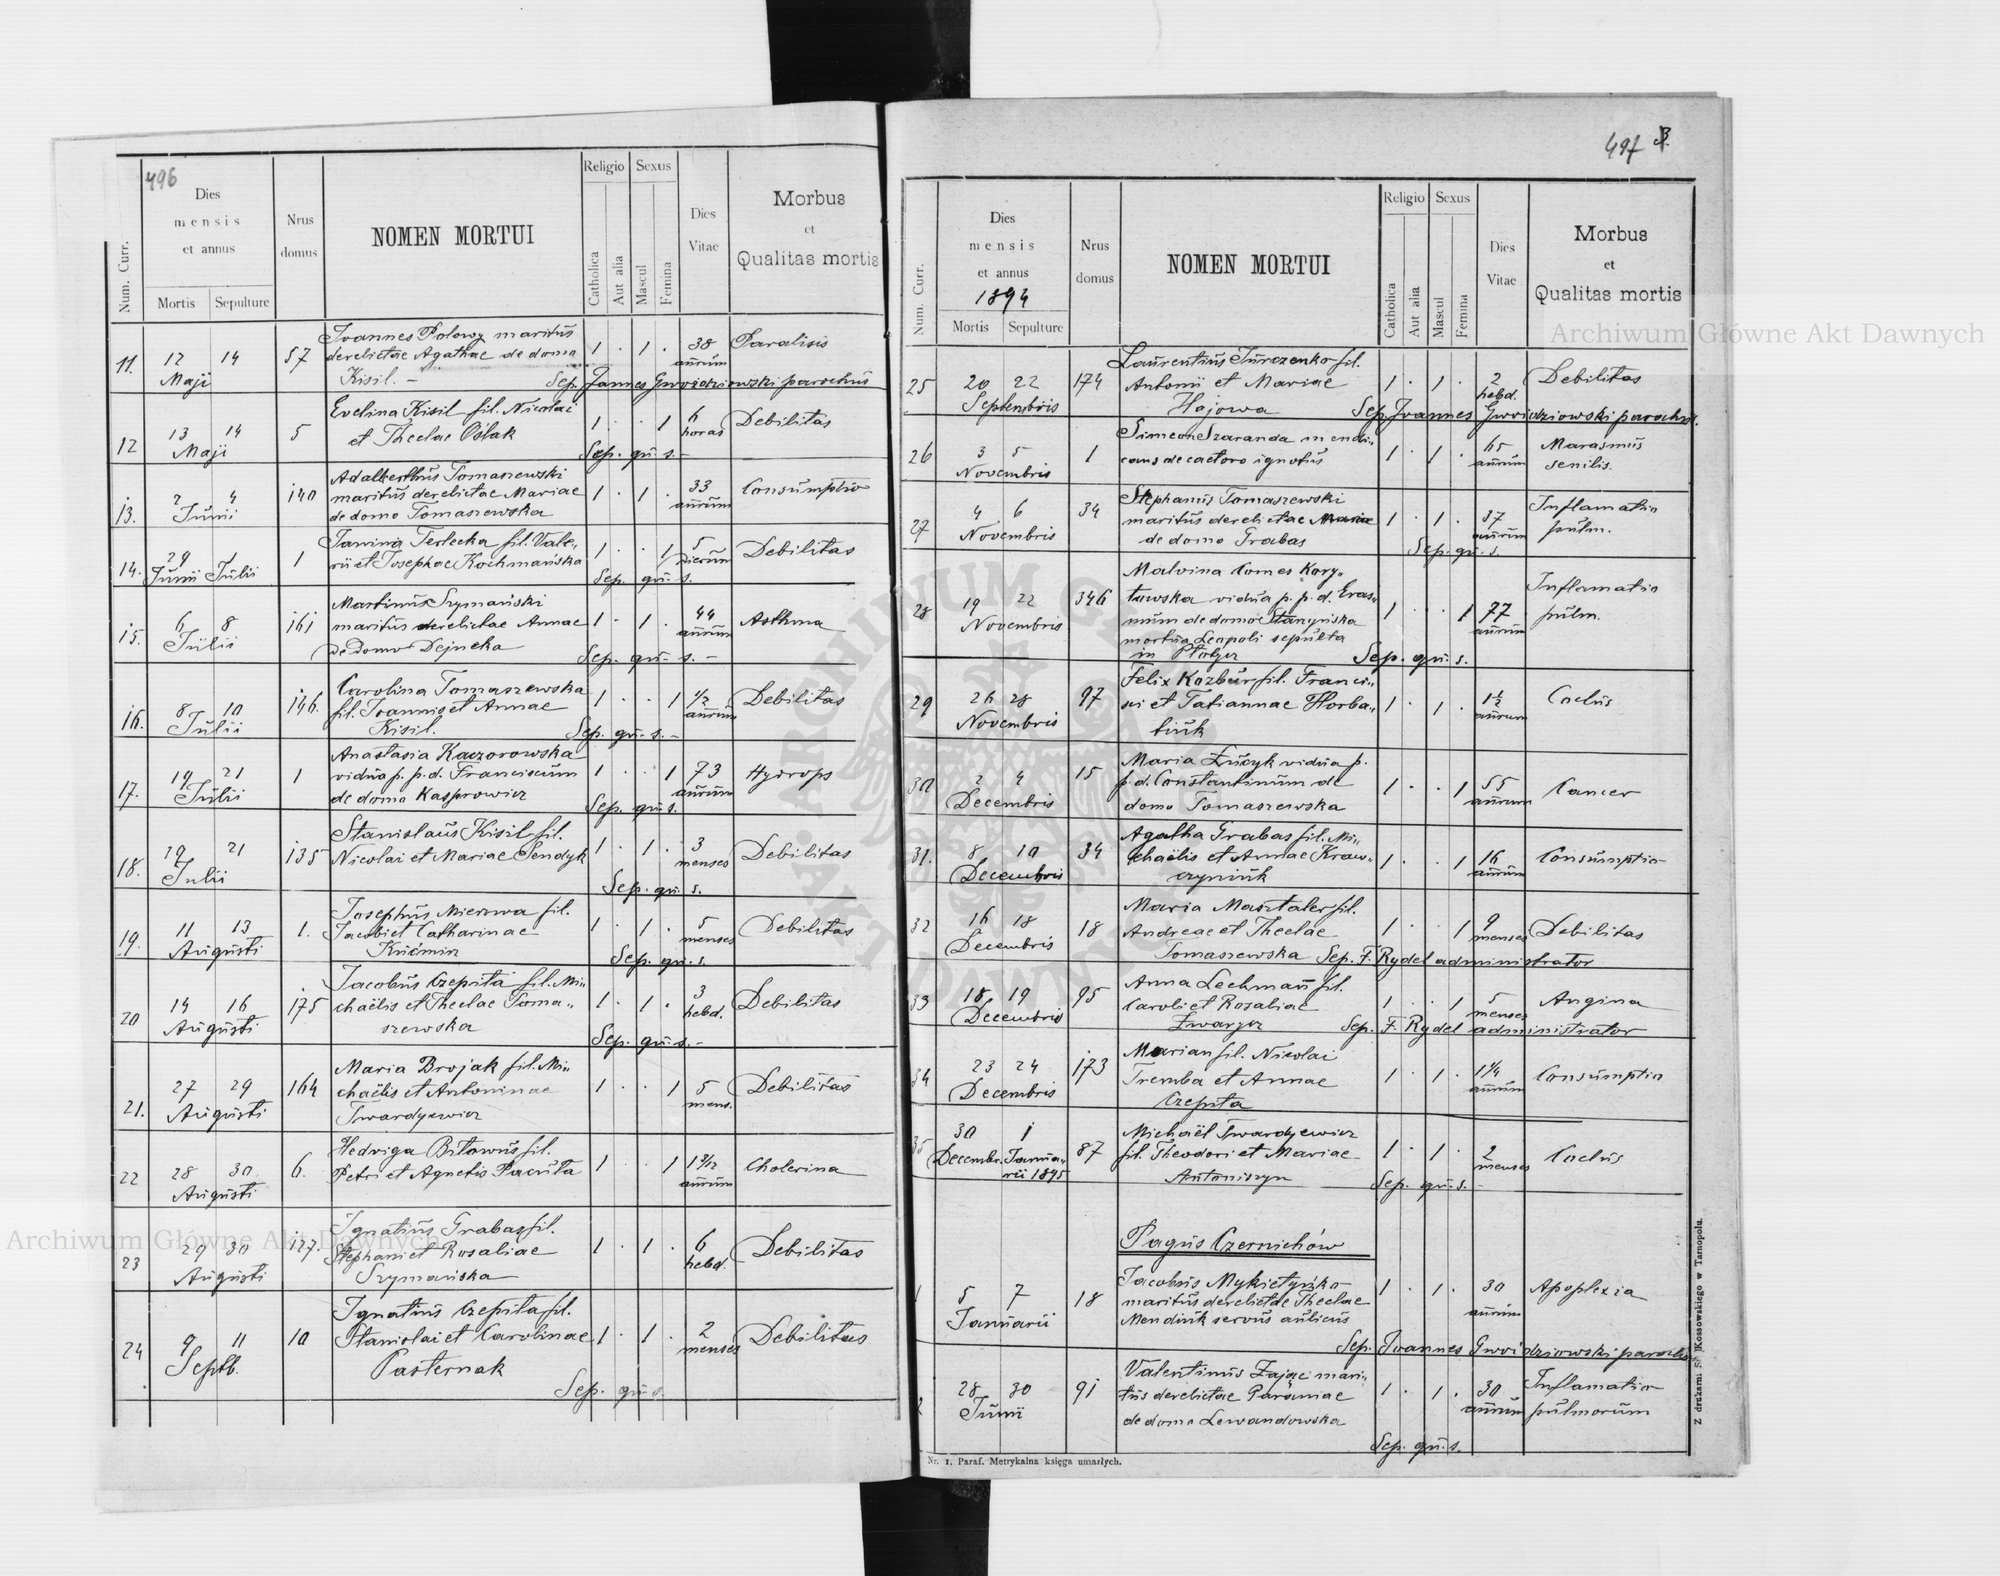 496
Num. Curr.
Dies
mensis
et annus
Mortis
Sepulture
Nrus
domus
NOMEN MORTUI
Religio
Catholica
Aut alia
Sexus
Mascul
Femina
Dies
Vitae
Morbus
et
Qualitas mortis
11. 12 14 57 Joannes Polowy maritus 1 . 1 . 38 Paralisis
Maji derelictae Agathae de domo annorum
Kisil. - Sep. Joannes Gwoździowski parochus
12 13 14 5 Evelina Kisil fil. Nicolai 1 . . 1 6 Debilitas
Maji et Theclae Oślak horas
Sep. qu. s. -
13. 2 4 140 Adalberthus Tomaszewski 1 . 1 . 33 Consumptio
Junii maritus derelictae Mariae annorum
de domo Tomaszewska
14. 29 1 1 Janina Terlecka fil. Vale„ 1 . . 1 5 Debilitas
Junii Julii rii et Josephae Kochmańska dierum
Sep. qu. s.
15. 6 8 161 Martinus Szymański 1 . 1 . 44 Asthma
Julii maritus derelictae Annae annorum
de domo Dejneka
Sep. qu. s. -
16. 8 10 146. Carolina Tomaszewska 1 . . 1 1/2 Debilitas
Julii fil. Joannis et Annae annorum
Kisil. Sep. qu. s. -
17. 19 21 1 Anastasia Kaczorowska 1 . . 1 73 Hydrops
Julii vidua p. p. d. Franciscum annorum
de domo Kasprowicz Sep. qu. s.
18. 19 21 135 Stanislaus Kisil fil. 1 . 1 . 3 Debilitas
Julii Nicolai et Mariae Pendyk menses
Sep. qu. s.
19. 11 13 1. Josephus Mierzwa fil. 1 . 1 . 5 Debilitas
Augusti Jacobi et Catharinae menses
Kuśmir Sep. qu. s.
20 14 16 175 Jacobus Czepita fil. Mi„ 1 . 1 . 3 Debilitas
Augusti chaëlis et Theclae Toma„ hebd.
szewska
Sep. qu. s. -
21. 27 29 164 Maria Brojak fil. Mi„ 1 . . 1 5 Debilitas
Augusti chaëlis et Antoninae mens.
Twardyewicz
22 28 30 6. Hedviga Bitowus fil. 1 . . 1 1 2/12 Cholerina
Augusti Petri et Agnetis Pacuła annorum
23 29 30 127. Ignatius Grabas fil. 1 . 1 . 6 Debilitas
Augusti Stephani et Rosaliae hebd.
Szymańska
24 9 11 10 Ignatius Czepita fil. 1 . 1 . 2 Debilitas
Septb. Stanislai et Carolinae menses
Pasternak
Sep. qu. s.
497
Num. Curr.
Dies
mensis
et annus
1894
Mortis
Sepulture
Nrus
domus
NOMEN MORTUI
Religio
Catholica
Aut alia
Sexus
Mascul
Femina
Dies
Vitae
Morbus
et
Qualitas mortis
25 20 22 174 Laurentius Jurczenko fil. 1 . 1 . 2 Debilitas
Septembris Antonii et Mariae hebd.
Hajowa Sep. Joannes Gwoździowski parochus.
26 3 5 1 Simeon Szaranda mendi„ 1 . 1 . 65 Marasmus
Novembris cans de caetero ignotus annorum senilis.
27 4 6 34 Stephanus Tomaszewski 1 . 1 . 37 Inflamatio
Novembris maritus derelictae Mariae annorum pulm.
de domo Grabas Sep. qu. s.
28 19 22 346 Malvina Comes Kory„ 1 . . 1 77 Inflamatio
Novembris towska vidua p. p. d. Eras„ annorum pulm.
mum de domo Starzyńska
mortua Leopoli sepulta
in Płotycz Sep. qu. s.
29 26 28 97 Felix Kozbur fil. Franci„ 1 . 1 . 1 1/2 Coclus
Novembris sci et Tatiannae Horba„ annorum
tiuk
30 2 4 15 Maria Łućyk vidua p. 1 . . 1 55 Cancer
Decembris p. d. Constantinum de annorum
domo Tomaszewska
31. 8 10 34 Agatha Grabas fil. Mi„ 1 . . 1 16 Consumptio
Decembris chaëlis et Annae Kraw„ annorum
czyniuk
32 16 18 18 Maria Masztaler fil. 1 . . 1 9 Debilitas
Decembris Andreae et Theclae menses
Tomaszewska Sep. F. Rydel administrator
33 18 19 95 Anna Lechman fil. 1 . . 1 5 Angina
Decembris Caroli et Rosaliae menses
Zwarycz Sep. F. Rydel administrator
34 23 24 173 Marian fil. Nicolai 1 . 1 . 1 1/4 Consumptio
Decembris Tremba et Annae annorum
Czepita
35 30 1 87 Michaël Twardyewicz 1 . 1 . 2 Coclus
Decembr. Janua„ fil. Theodori et Mariae menses
rii 1895 Antoniszyn Sep. qu. s. -
Pagus Czernichów
1 5 7 18 Jacobus Mykietyszko 1 . 1 . 30 Apoplexia
Januarii maritus derelictae Theclae annorum
Mendiuk servus aulicus
Sep. Joannes Gwoździowski parochus
2 28 30 91 Valentinus Zając mari„ 1 . 1 . 30 Inflamatio
Junii tus derelictae Paroniae annorum pulmorum
de domo Lewandowska
Sep. qu. s.
Nr. 1. Paraf. Metrykalna księga umarłych.
Z drukarni St. Kossowskiego w Tarnopolu.
Archiwum Główne Akt Dawnych
Archiwum Główne Akt Dawnych
ARCHIWUM GŁÓWNE AKT DAWNYCH